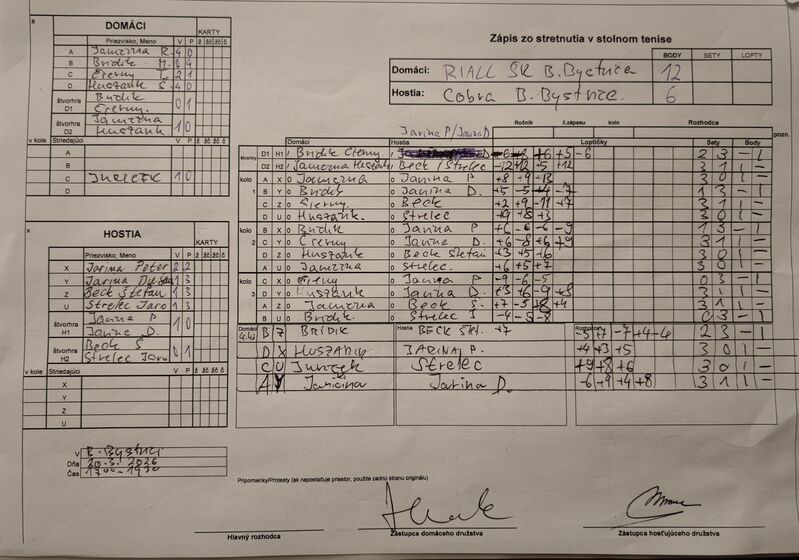 a
DOMÁCI
KARTY
Priezvisko, Meno V P ž žč žč č
A Jamečna R. 4 0
B Bridik M. 0 4
C Čierny L. 2 1
D Huszarik Š. 4 0
štvorhra D1 Bridik Čierny 0 1
štvorhra D2 Jamečna Huszarik 1 0
v kole Striedajúci V P ž žč žč č
A
B
C Jureček 1 0
D
x
HOSTIA
KARTY
Priezvisko, Meno V P ž žč žč č
X Jarina Peter 2 2
Y Jarina Dušan 1 3
Z Beck Štefan 1 3
U Strelec Jaro 1 3
štvorhra H1 Jarina P Jarina D. 1 0
štvorhra H2 Beck Š Strelec Jaro 0 1
v kole Striedajúci V P ž žč žč č
X
Y
Z
U
V B. Bystrici
Dňa 20.3. 2026
Čas 1700-1930
Zápis zo stretnutia v stolnom tenise
BODY SETY LOPTY
Domáci: RIALL ŠK B. Bystrica 12
Hostia: Cobra B. Bystrica. 6
Jarina P/Jarina D
Ročník č.zápasu kolo Rozhodca
pozn.
Domáci Hostia Loptičky Sety Body
štvorhry D1 H1 Bridik Čierny -6 -8 +6 +5 -6 2 3 - 1
D2 H2 Jamečna Huszarik Beck / Strelec -12 +12 -5 +12 3 1 1 -
kolo A X 0 Jamečna 0 Jarina P +8 +9 -13 3 0 1 -
1 B Y 0 Bridik 0 Janina D. +5 -5 -4 -7 1 3 - 1
C Z 0 Čierny 0 Beck +2 +9 -11 +7 3 1 1 -
D U 0 Huszarik. 0 Strelec +9 +8 +3 3 0 1 -
kolo B X 0 Bridik 0 Jarina P +6 -6 -6 -9 1 3 - 1
2 C Y 0 Čierny 0 Jarina D. +6 -8 +6 +9 3 1 1 -
D Z 0 Huszarik 0 Beck Štefan +3 +5 +6 3 0 1 -
A U 0 Jamečna 0 Strelec. +6 +5 +7 3 0 1 -
kolo C X 0 Čierny 0 Jarina P -9 -6 -5 0 3 - 1
3 D Y 0 Huszarik 0 Jarina D. +3 +6 -9 +8 3 1 1 -
A Z 0 Jamečna 0 Beck Š. +7 -5 +8 +4 3 1 1 -
B U 0 Bridik 0 Strelec J -4 -5 -8 0 3 - 1
Domáci Hostia Rozhodca
B Z BRIDIK BECK ŠKI. +7 -5 +7 -7 +4 -4 2 3 - 1
D X HUSZARIK JARINA P. +4 +3 +5 3 0 1 -
C U Jureček Strelec +9 +8 +6 3 0 1 -
A Y Jamečna Jarina D. -6 +9 +4 +8 3 1 1 -
Pripomienky/Protesty (ak nepostačuje priestor, použite zadnú stranu originálu)
Hlavný rozhodca
Zástupca domáceho družstva
Zástupca hosťujúceho družstva